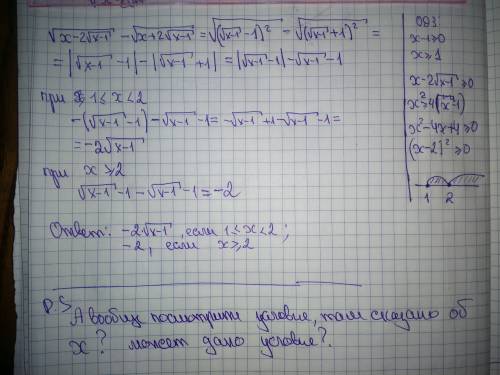 √x-2√x-1 - √x+2√x-1 = √(√x-1 -1)² - √(√x-1 +1)² =
= |√x-1 -1| - |√x-1 +1| = |√x-1 -1| - √x-1 -1
при 1≤x<2
-(√x-1 -1) - √x-1 -1 = -√x-1 +1 -√x-1 -1 =
= -2√x-1
при x≥2
√x-1 -1 - √x-1 -1 = -2
Ответ: -2√x-1, если 1≤x<2;
-2, если x≥2
ОДЗ
x-1≥0
x≥1
x-2√x-1 ≥0
x²≥4(x-1)
x²-4x+4≥0
(x-2)²≥0
1 2
P.S
А вообще посмотрите условие, там сказано об
x? может дано условие?.